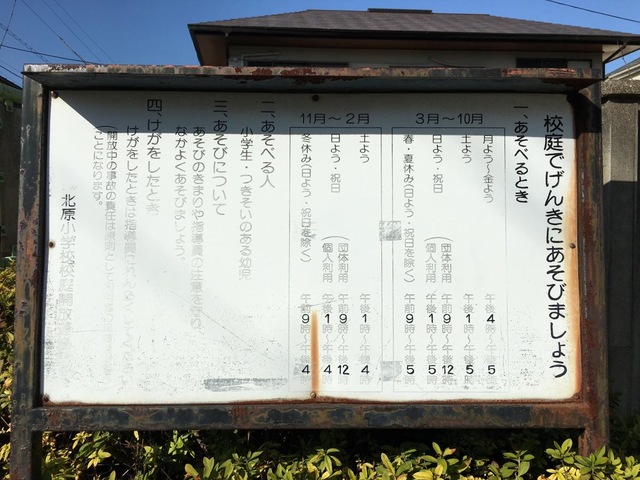 校庭でげんきにあそびましょう
一、あそべるとき
3月～10月
月よう～金よう 午後4時～午後5時
土よう 午後1時～午後5時
日よう・祝日 (団体利用 午前9時～午後12時
個人利用 午後1時～午後5時
春・夏休み(日よう・祝日を除く) 午前9時～午後5時
11月～2月
土よう 午後1時～午後4時
日よう・祝日 (団体利用 午前9時～午後12時
個人利用 午後1時～午後4時
冬休み(日よう・祝日を除く) 午前9時～午後4時
二、あそべる人
小学生・つきそいのある幼児
三、あそびについて
あそびのきまりや指導員の注意を守り、
なかよくあそびましょう。
四、けがをしたとき
けがをしたときは指導員に
(開放中の事故の責任は
ことになります。
北原小学校校庭開放